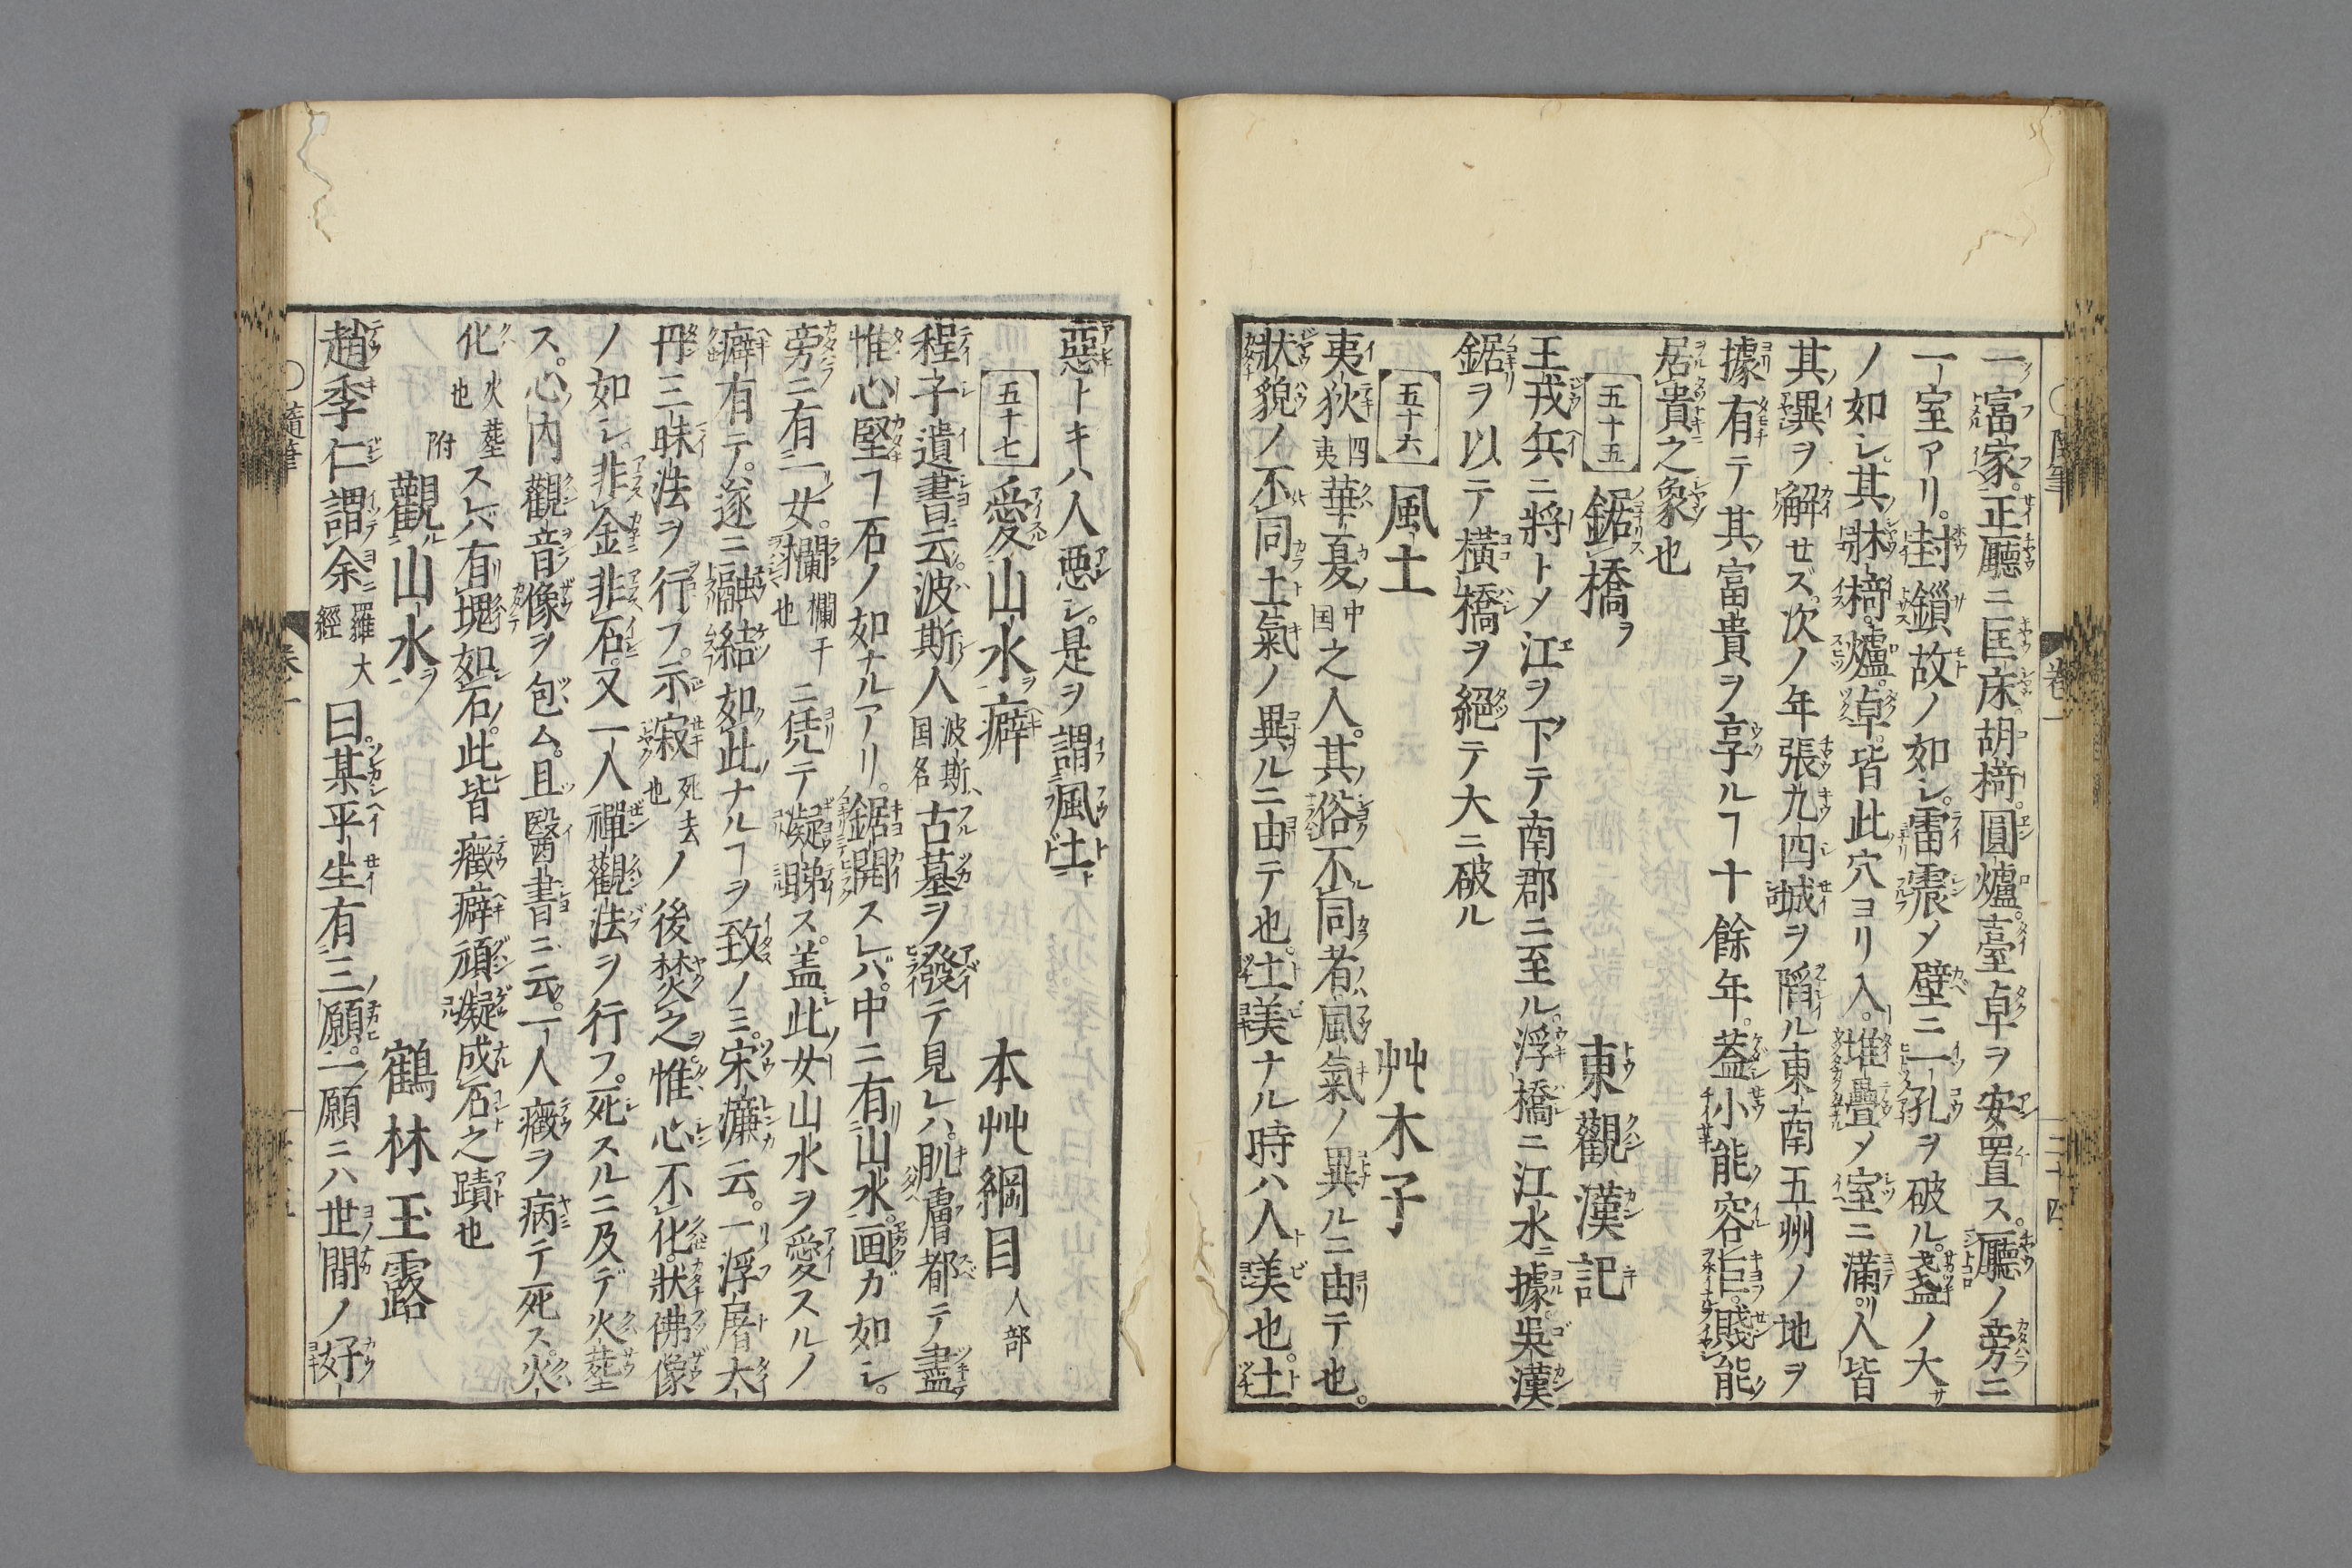 一富家。正廳ニ匡床胡椅。圓爐。臺卓ヲ安置ス。廳ノ旁ニ
一室アリ。封鎖故ノ如シ。雷震メ壁ニ一孔ヲ破ル。盞ノ大サ
ノ如シ。其牀椅。爐。卓。皆此穴ヨリ入。堆疊メ室ニ滿。人皆
其異ヲ解セズ。次ノ年張九四城ヲ陷ル東南五州ノ地ヲ
據有テ其富貴ヲ享ルヿ十餘年。蓋小能容巨。賤能
居貴之象也
五十五 鋸橋ヲ 東觀漢記
王戎兵ニ將トメ江ヲ下テ南郡ニ至ル。浮橋ニ江水ニ據。吳漢
鋸ヲ以テ橫橋ヲ絕テ大ニ破ル
五十六 風土 艸木子
夷狄四夷華夏中国之人。其俗不同者。風氣ノ異ルニ由テ也。
狀貌ノ不同土氣ノ異ルニ由テ也。土美ナル時ハ人美也。土
惡トキハ人悪シ。是ヲ謂風土ト
五十七 愛山水ヲ癖 本艸綱目人部
程子遺書ニ云。波斯人波斯ハ国名古墓ヲ發テ見レハ。肌膚都テ盡
惟心堅ヿ石ノ如ナルアリ。鋸開スレバ。中ニ有山水。画ガ如シ。
旁ニ有一女。欄欄干也ニ凭テ凝睇ス。盖此女山水ヲ愛スルノ
癖有テ。遂ニ融結如此ナルヿヲ致ノミ。宋濂云。一浮屠大
丹三昧法ヲ行フ。示寂死去也ノ後焚之。惟心不化。狀佛像
ノ如シ。非金非石。又一人禪觀法ヲ行フ。死スルニ及デ火葬
ス。心内觀音像ヲ包ム。且醫書ニ云。一人癥ヲ病テ死ス。火
化火葬也スレバ有塊如石。此皆癥癖頑凝成石之蹟也
附 觀山水ヲ 鶴林玉露
趙季仁謂余羅大經曰。某平生有三願。一願ニハ世間ノ好
○隨筆
卷一
三十四